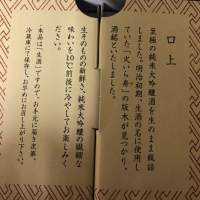 口上
至極の純米大吟醸酒を生のまま瓶詰
しました。明治初期、生酒の名に使用し
ていた「死しら寿」の版木が見つかり、
酒銘といたしました。
生そのものの新鮮さ、純米大吟醸の繊細な
味わいを10℃前後に冷やしてお楽しみく
ださい。
・本品は「生酒」ですので、お手元に届き次第、
冷蔵庫にて保存し、お早めにお召し上がり下さい。